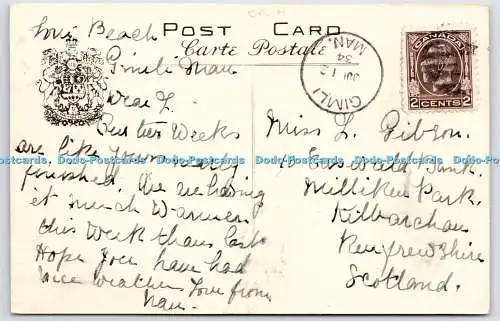 POST CARD
Carte Postale
Beach
Gimli Man
Dear L.
Our two Weeks
are like yours nearly
finished. We are having
it much Warmer
this week than last
Hope you have had
nice weather Love from
Nan.
GIMLI
JUL 12
34
MAN.
CANADA
2 CENTS 2
Miss L. Gibson.
Emerald Bank.
Milliken Park.
Kilbarchan
Renfrewshire
Scotland.
Postcards Data-Postcards Data-Postcards Data-Postcards Data-Postcards Data-Postcards